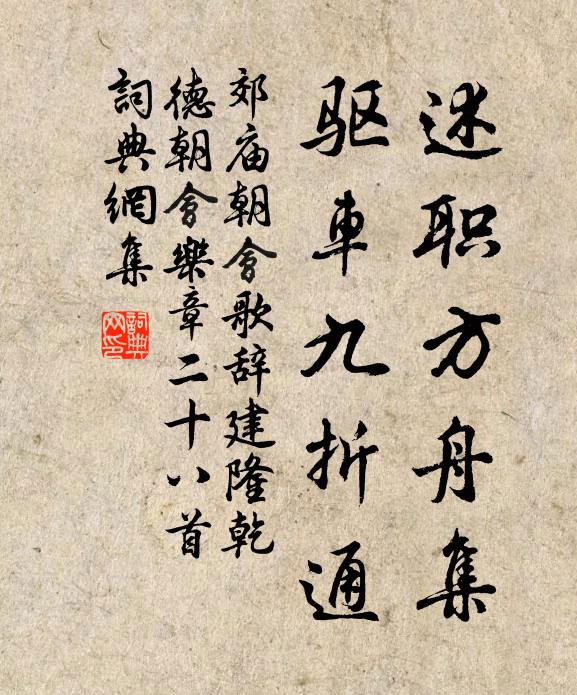 述职方舟集
驱車九折通
郊庙朝會歌辞建隆乾
德朝會樂章二十八首
詞典網集
詞典网印